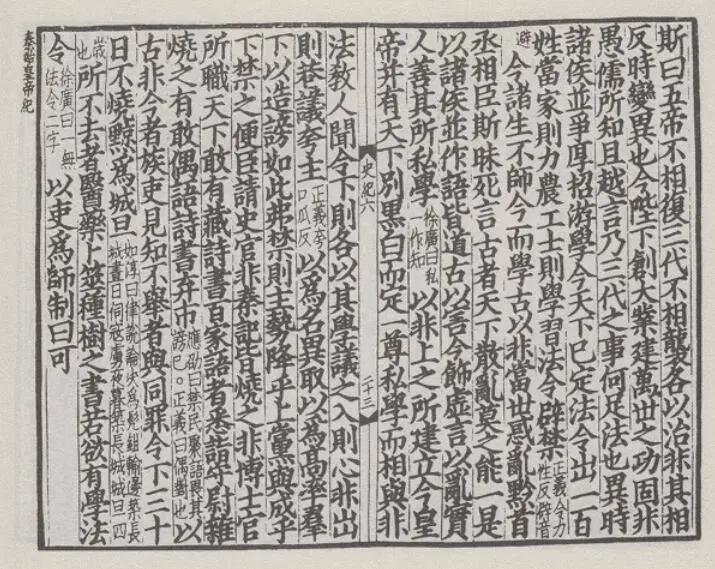 斯曰五帝不相復三代不相襲各以治非其相
反時變異也今陛下創大業建萬世之功固非
愚儒所知且越言乃三代之事何足法也異時
諸侯並爭厚招游學今天下已定法令出一百
姓當家則力農工士則學習法令辟禁正義令力性反辟音
避今諸生不師今而學古以非當世惑亂黔首
丞相臣斯昧死言古者天下散亂莫之能一是
以諸侯並作語皆道古以害今飾虛言以亂實
人善其所私學徐廣曰私一作知以非上之所建立今皇
帝并有天下別黑白而定一尊私學而相與非
史紀六 二十三
法教人聞令下則各以其學議之入則心非出
則巷議夸主正義夸口瓜反以爲名異取以爲高率羣
下以造謗如此弗禁則主勢降乎上黨與成乎
下禁之便臣請史官非秦記皆燒之非博士官
所職天下敢有藏詩書百家語者悉詣守尉雜
燒之有敢偶語詩書弃市應劭曰禁民聚語畏其謗已。正義曰偶對也以
古非今者族吏見知不舉者與同罪令下三十
日不燒黥爲城旦如淳曰律說論決爲髡鉗輸邊築長城晝日伺寇虜夜暮築長城城旦四
歲也所不去者醫藥卜筮種樹之書若欲有學法
令徐廣曰一無法令二字以吏爲師制曰可
秦始皇帝紀